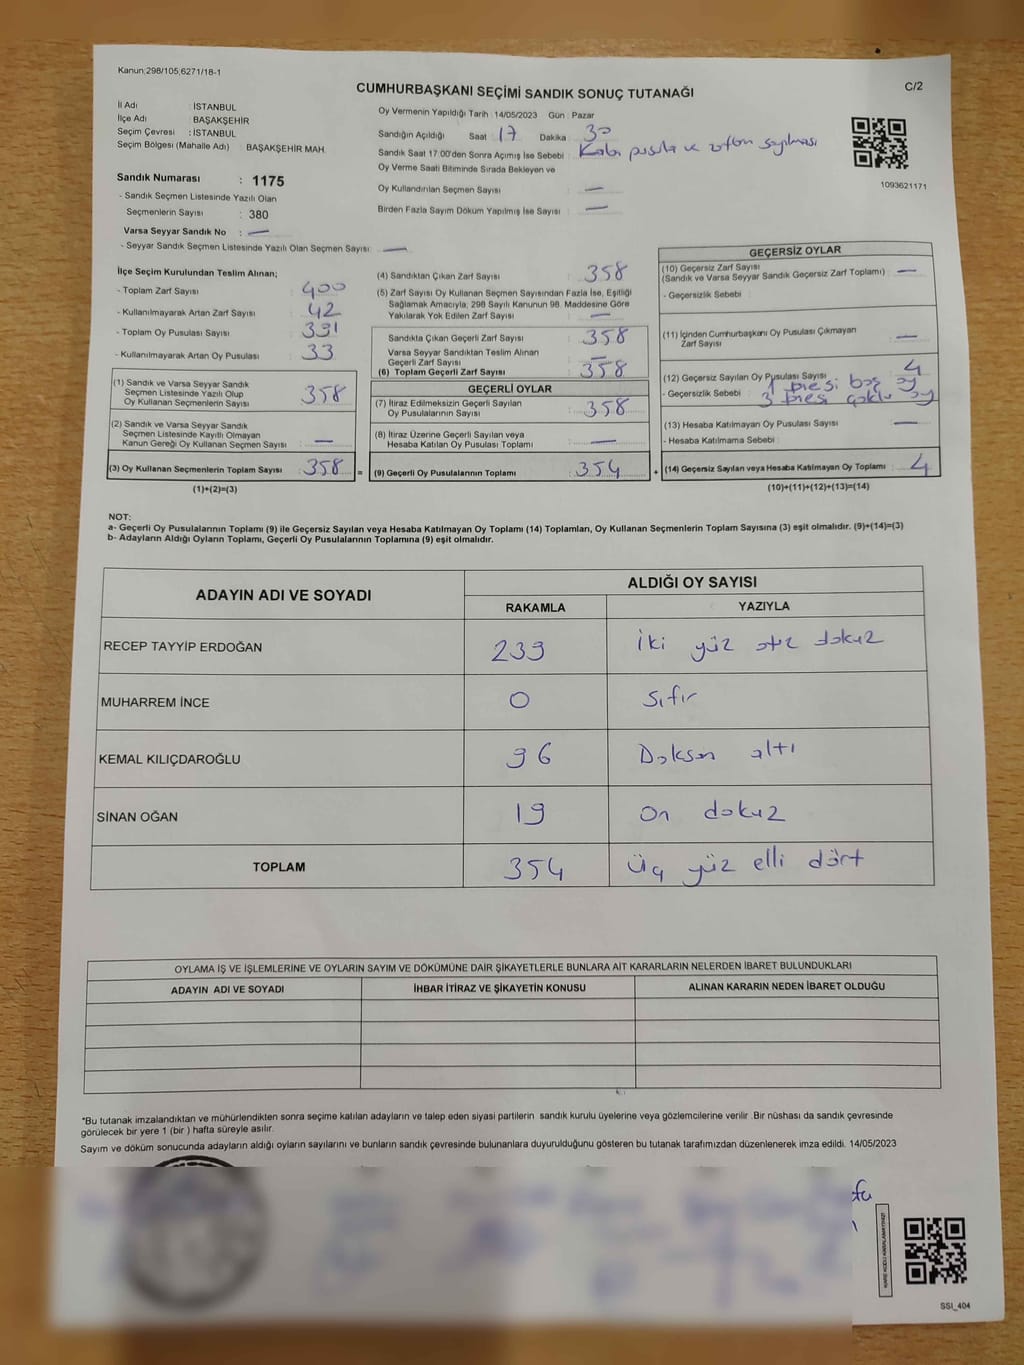 Kanun;298/105;6271/18-1
CUMHURBAŞKANI SEÇİMİ SANDIK SONUÇ TUTANAĞI
C/2
İl Adı : İSTANBUL
İlçe Adı : BAŞAKŞEHİR
Seçim Çevresi : İSTANBUL
Seçim Bölgesi (Mahalle Adı) BAŞAKŞEHİR MAH.
Oy Vermenin Yapıldığı Tarih : 14/05/2023 Gün : Pazar
Sandığın Açıldığı Saat 17 Dakika 30
Sandık Saat 17:00'den Sonra Açımış İse Sebebi : pusula ve zarfın sayılması
Oy Verme Saati Bitiminde Sırada Bekleyen ve
Oy Kullandırılan Seçmen Sayısı : —
Birden Fazla Sayım Döküm Yapılmış İse Sayısı : —
1093621171
Sandık Numarası : 1175
- Sandık Seçmen Listesinde Yazılı Olan
Seçmenlerin Sayısı : 380
Varsa Seyyar Sandık No : —
- Seyyar Sandık Seçmen Listesinde Yazılı Olan Seçmen Sayısı: —
İlçe Seçim Kurulundan Teslim Alınan;
- Toplam Zarf Sayısı : 400
- Kullanılmayarak Artan Zarf Sayısı : 42
- Toplam Oy Pusulası Sayısı : 391
- Kullanılmayarak Artan Oy Pusulası : 33
(1) Sandık ve Varsa Seyyar Sandık
Seçmen Listesinde Yazılı Olup
Oy Kullanan Seçmenlerin Sayısı : 358
(2) Sandık ve Varsa Seyyar Sandık
Seçmen Listesinde Kayıtlı Olmayan
Kanun Gereği Oy Kullanan Seçmen Sayısı : —
(3) Oy Kullanan Seçmenlerin Toplam Sayısı : 358 =
(1)+(2)=(3)
(4) Sandıktan Çıkan Zarf Sayısı : 358
(5) Zarf Sayısı Oy Kullanan Seçmen Sayısından Fazla İse, Eşitliği
Sağlamak Amacıyla, 298 Sayılı Kanunun 98. Maddesine Göre
Yakılarak Yok Edilen Zarf Sayısı : —
Sandıkta Çıkan Geçerli Zarf Sayısı : 358
Varsa Seyyar Sandıktan Teslim Alınan
Geçerli Zarf Sayısı : —
(6) Toplam Geçerli Zarf Sayısı : 358
GEÇERLİ OYLAR
(7) İtiraz Edilmeksizin Geçerli Sayılan
Oy Pusulalarının Sayısı : 358
(8) İtiraz Üzerine Geçerli Sayılan veya
Hesaba Katılan Oy Pusulası Toplamı : —
(9) Geçerli Oy Pusulalarının Toplamı : 354 +
GEÇERSİZ OYLAR
(10) Geçersiz Zarf Sayısı
(Sandık ve Varsa Seyyar Sandık Geçersiz Zarf Toplamı) : —
- Geçersizlik Sebebi :
(11) İçinden Cumhurbaşkanı Oy Pusulası Çıkmayan
Zarf Sayısı : —
(12) Geçersiz Sayılan Oy Pusulası Sayısı : 4
- Geçersizlik Sebebi : 1 boş oy
3 çoklu oy
(13) Hesaba Katılmayan Oy Pusulası Sayısı : —
- Hesaba Katılmama Sebebi :
(14) Geçersiz Sayılan veya Hesaba Katılmayan Oy Toplamı : 4
(10)+(11)+(12)+(13)=(14)
NOT:
a- Geçerli Oy Pusulalarının Toplamı (9) ile Geçersiz Sayılan veya Hesaba Katılmayan Oy Toplamı (14) Toplamları, Oy Kullanan Seçmenlerin Toplam Sayısına (3) eşit olmalıdır. (9)+(14)=(3)
b- Adayların Aldığı Oyların Toplamı, Geçerli Oy Pusulalarının Toplamına (9) eşit olmalıdır.
ADAYIN ADI VE SOYADI
ALDIĞI OY SAYISI
RAKAMLA YAZIYLA
RECEP TAYYİP ERDOĞAN 239 iki yüz otuz dokuz
MUHARREM İNCE 0 Sıfır
KEMAL KILIÇDAROĞLU 96 Doksan altı
SİNAN OĞAN 19 On dokuz
TOPLAM 354 Üç yüz elli dört
OYLAMA İŞ VE İŞLEMLERİNE VE OYLARIN SAYIM VE DÖKÜMÜNE DAİR ŞİKAYETLERLE BUNLARA AİT KARARLARIN NELERDEN İBARET BULUNDUKLARI
ADAYIN ADI VE SOYADI İHBAR İTİRAZ VE ŞİKAYETİN KONUSU ALINAN KARARIN NEDEN İBARET OLDUĞU
*Bu tutanak imzalandıktan ve mühürlendikten sonra seçime katılan adayların ve talep eden siyasi partilerin sandık kurulu üyelerine veya gözlemcilerine verilir .Bir nüshası da sandık çevresinde
görülecek bir yere 1 (bir ) hafta süreyle asılır.
Sayım ve döküm sonucunda adayların aldığı oyların sayılarını ve bunların sandık çevresinde bulunanlara duyurulduğunu gösteren bu tutanak tarafımızdan düzenlenerek imza edildi. 14/05/2023
SSI_404